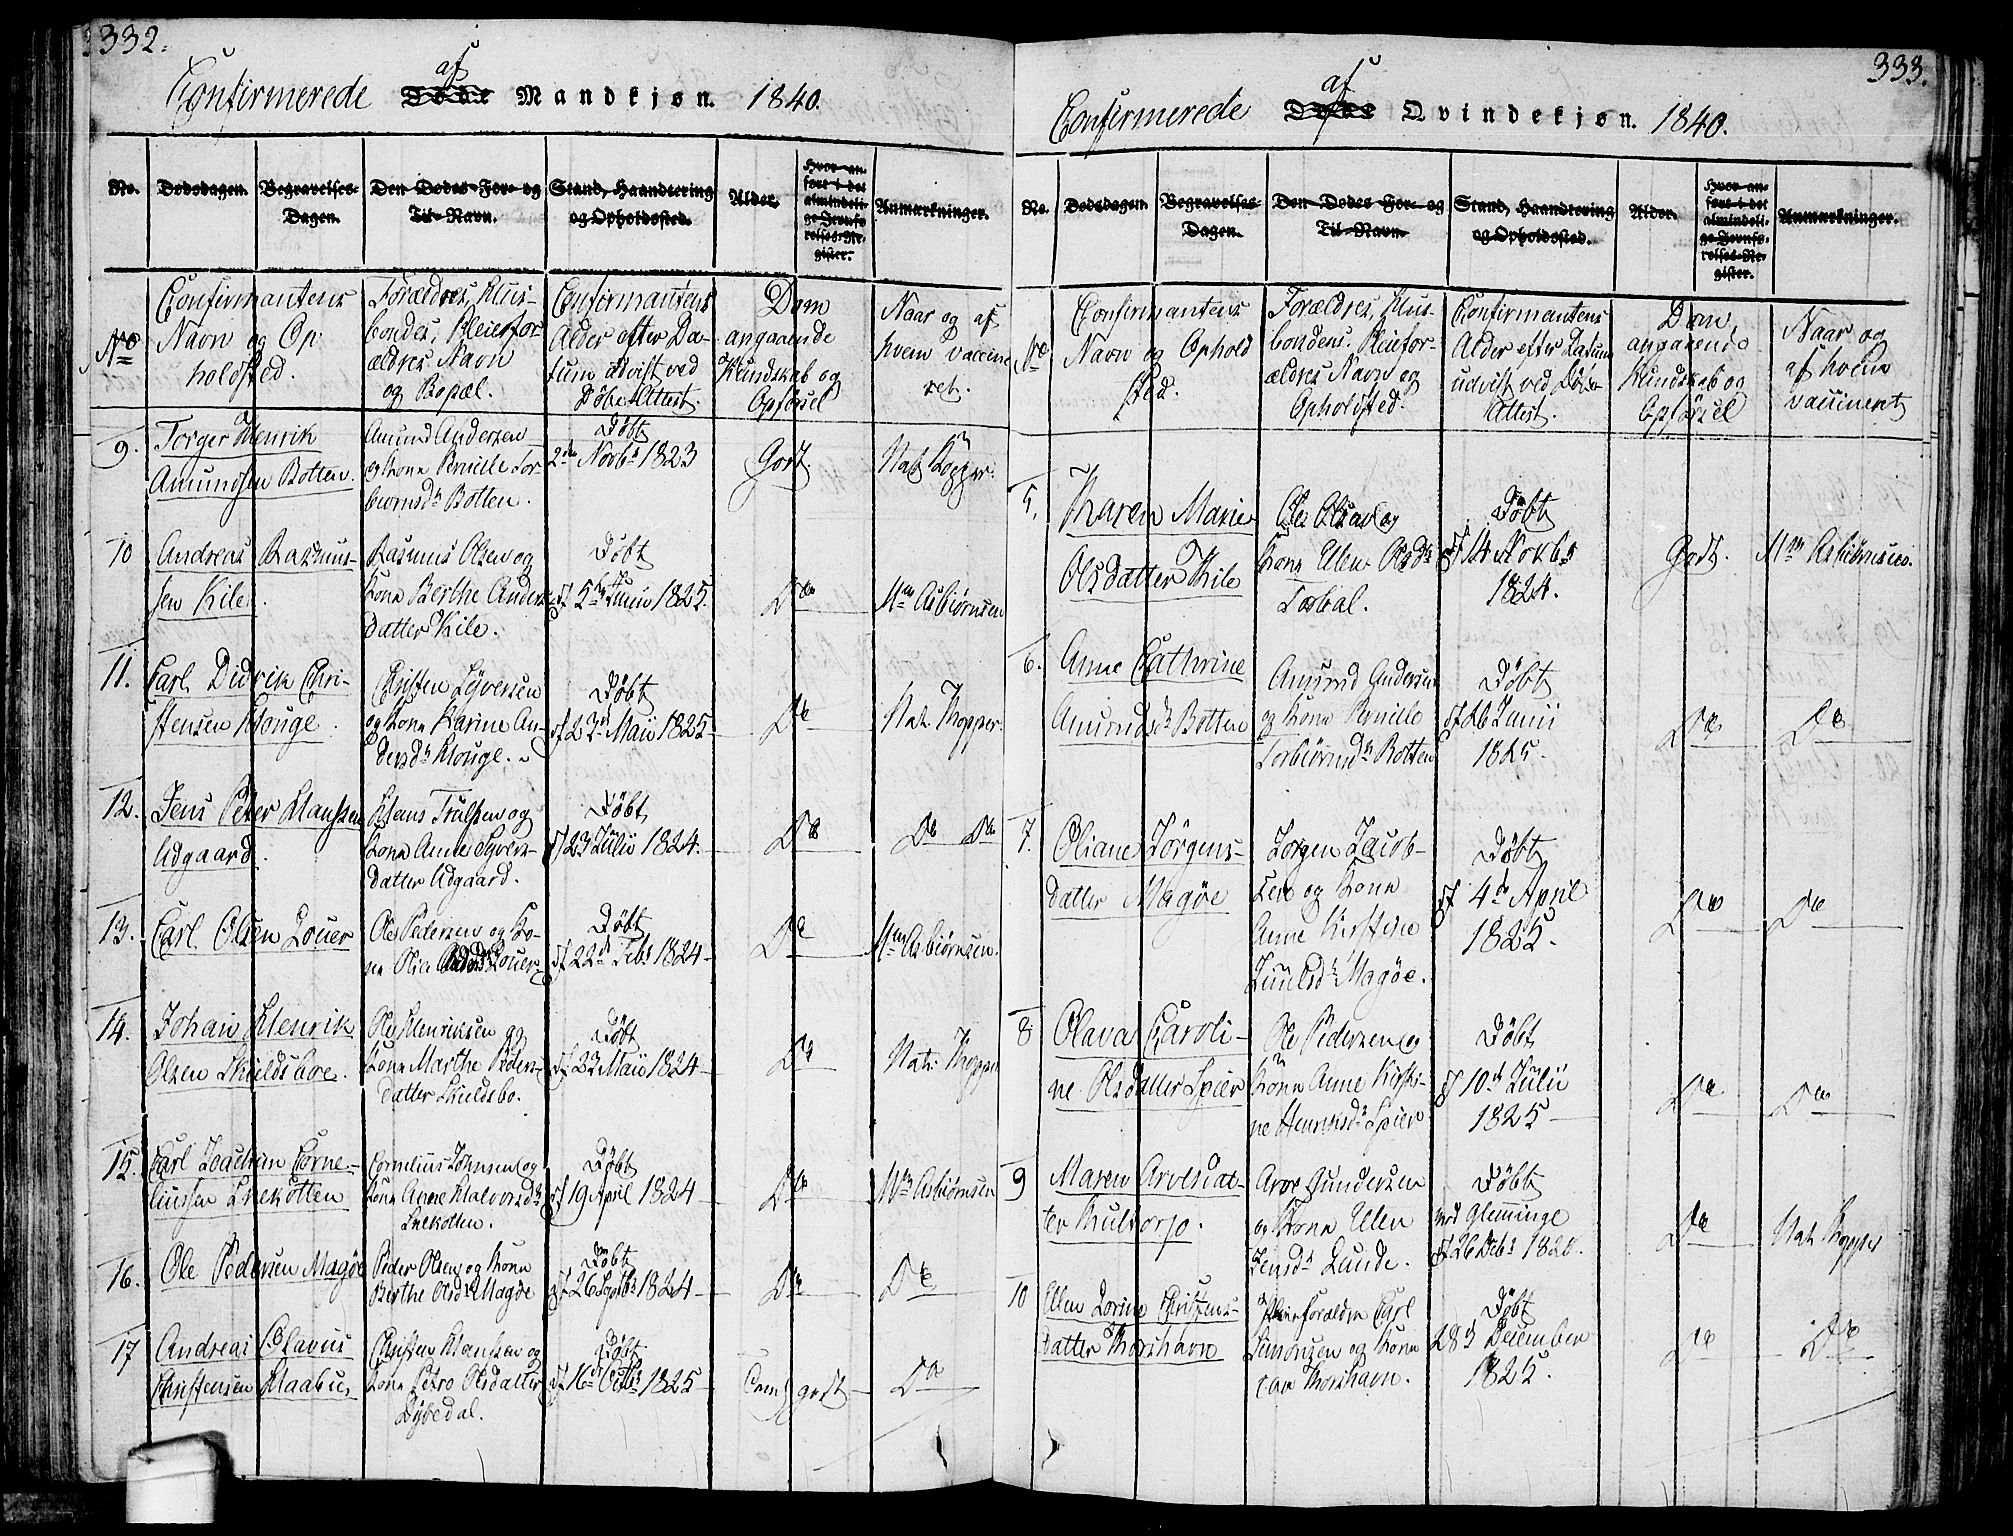 332.
Confirmerede af Døde Mandkjøn. 1840.
No. Dødsdagen. Begravelses-Dagen. Den Dødes For- og Til-Navn. Stand, Haandtering og Opholdssted. Alder. Hvor anført i det almindelige Jevnførelses-Register. Anmærkninger.
No
Confirmantens
Navn og Op
holdsted.
Forældres, Huus-
bondes, Pleiefor-
ældres Navn
og Bopæl.
Confirmantens
Alder efter Da-
tum udvist ved
Døbe Attest.
Dom
angaaende
Kundskab og
Opførsel
Naar og af
hvem vaccine
ret.
9.
Torger Henrik
Amundsen Botten.
Amund Andersen
og Kona Pernille Tor-
biørnsdr Botten.
Døbt
2den Novbr 1823
Godt
Nat Kopper.
10
Andreas Rasmus-
sen Kile.
Rasmus Olsen og
Kona Berthe Anders
datter Kile.
Døbt
d. 5te Junii 1825.
Do
Mm Asbiørnsen
11.
Carl Didrik Chri-
stensen Houge.
Christen Syversen
og Kona Karine An-
dersdr Houge.
Døbt
d 23de Maii 1825
Do
Nat. Kopper.
12.
Jens Peter Hanssen
Adgaard.
Hans Trulsen og
Kona Anne Syvers-
datter Adgaard.
Døbt
d 23 Julii 1824.
Do
Do Do
13.
Carl Olsen Louer
Ole Pedersen og Ko-
na Olia Louer
Døbt
d 22de Febr 1824
Do
Mm Asbiørnsen.
14.
Johan Henrik
Olsen Skieldsboe.
Ole Henriksen og
Kona Marthe Peders-
datter Skieldsbo.
Døbt
d. 23 Maii 1824
Do
Nat. Kopper
15.
Carl Joachim Corne-
liussen Snekotten
Cornelius Johnsen og
Kona Anne Halvorsdr
Snekotten.
Døbt
d 19 April 1824
Do
Mm Asbiørnsen
16.
Ole Pedersen Magøe
Peder Olsen og Kona
Berthe Olsdr Magøe
Døbt
d 26 Septbr 1824
Do
Do
17
Andreas Olavus
Christensen Haabu,
Christen Hansen og
Kona Petro Olsdatter
Dybedal.
Døbt
d 16de Octbr 1825
godt
Do
333.
Confirmerede af Døde Qvindekjøn. 1840.
No. Dødsdagen. Begravelses-Dagen. Den Dødes For- og Til-Navn. Stand, Haandtering og Opholdssted. Alder. Hvor anført i det almindelige Jevnførelses-Register. Anmærkninger.
No
Confirmantens
Navn og Ophold
sted.
Forældres, Huus-
bondens, Pleiefor-
ældres Navn og
Opholdsted.
Confirmantens
Alder efter Datum
udvist ved Døbe
Attest.
Dom,
angaaende
Kundskab og
Opførsel
Naar og
af hvem
vaccineret
5.
Karen Marie
Olsdatter Kile
Ole Olsen og
Kona Ellen Olsdr
Torbal.
Døbt
d 14 Novbr
1824.
Godt.
Mm Asbiørnsen.
6.
Anne Cathrine
Amundsdr Botten
Amund Andersen
og Kona Pernille
Torbiørnsdr Botten
Døbt
d 26 Junii
1825.
Do
Do
7.
Oliane Jørgens-
datter Magøe
Jørgen Jacob-
sen og Kona
Anne Kirstine
Juulsdr Magøe.
Døbt
d 4de April
1825.
Do
Do
8
Olava Caroli-
ne Olsdatter Spier
Ole Pedersen og
Kona Anne Kirsti-
ne Henriksdr Spier
Døbt
d 10de Julii
1825
Do
Do
9
Maren Arvesdat-
ter Hultorp.
Arve Gundersen
og Kona Ellen
Jensdr Lunde.
Døbt
ved Glemminge
d 26 Debr 1820.
Do
Nat. Kopper
10
Ellen Lorine Christens-
datter Thorshavn
Pleieforældre Carl
Simonsen og Kona
Thorshavn.
Døbt
28d December
1825.
Do
Do